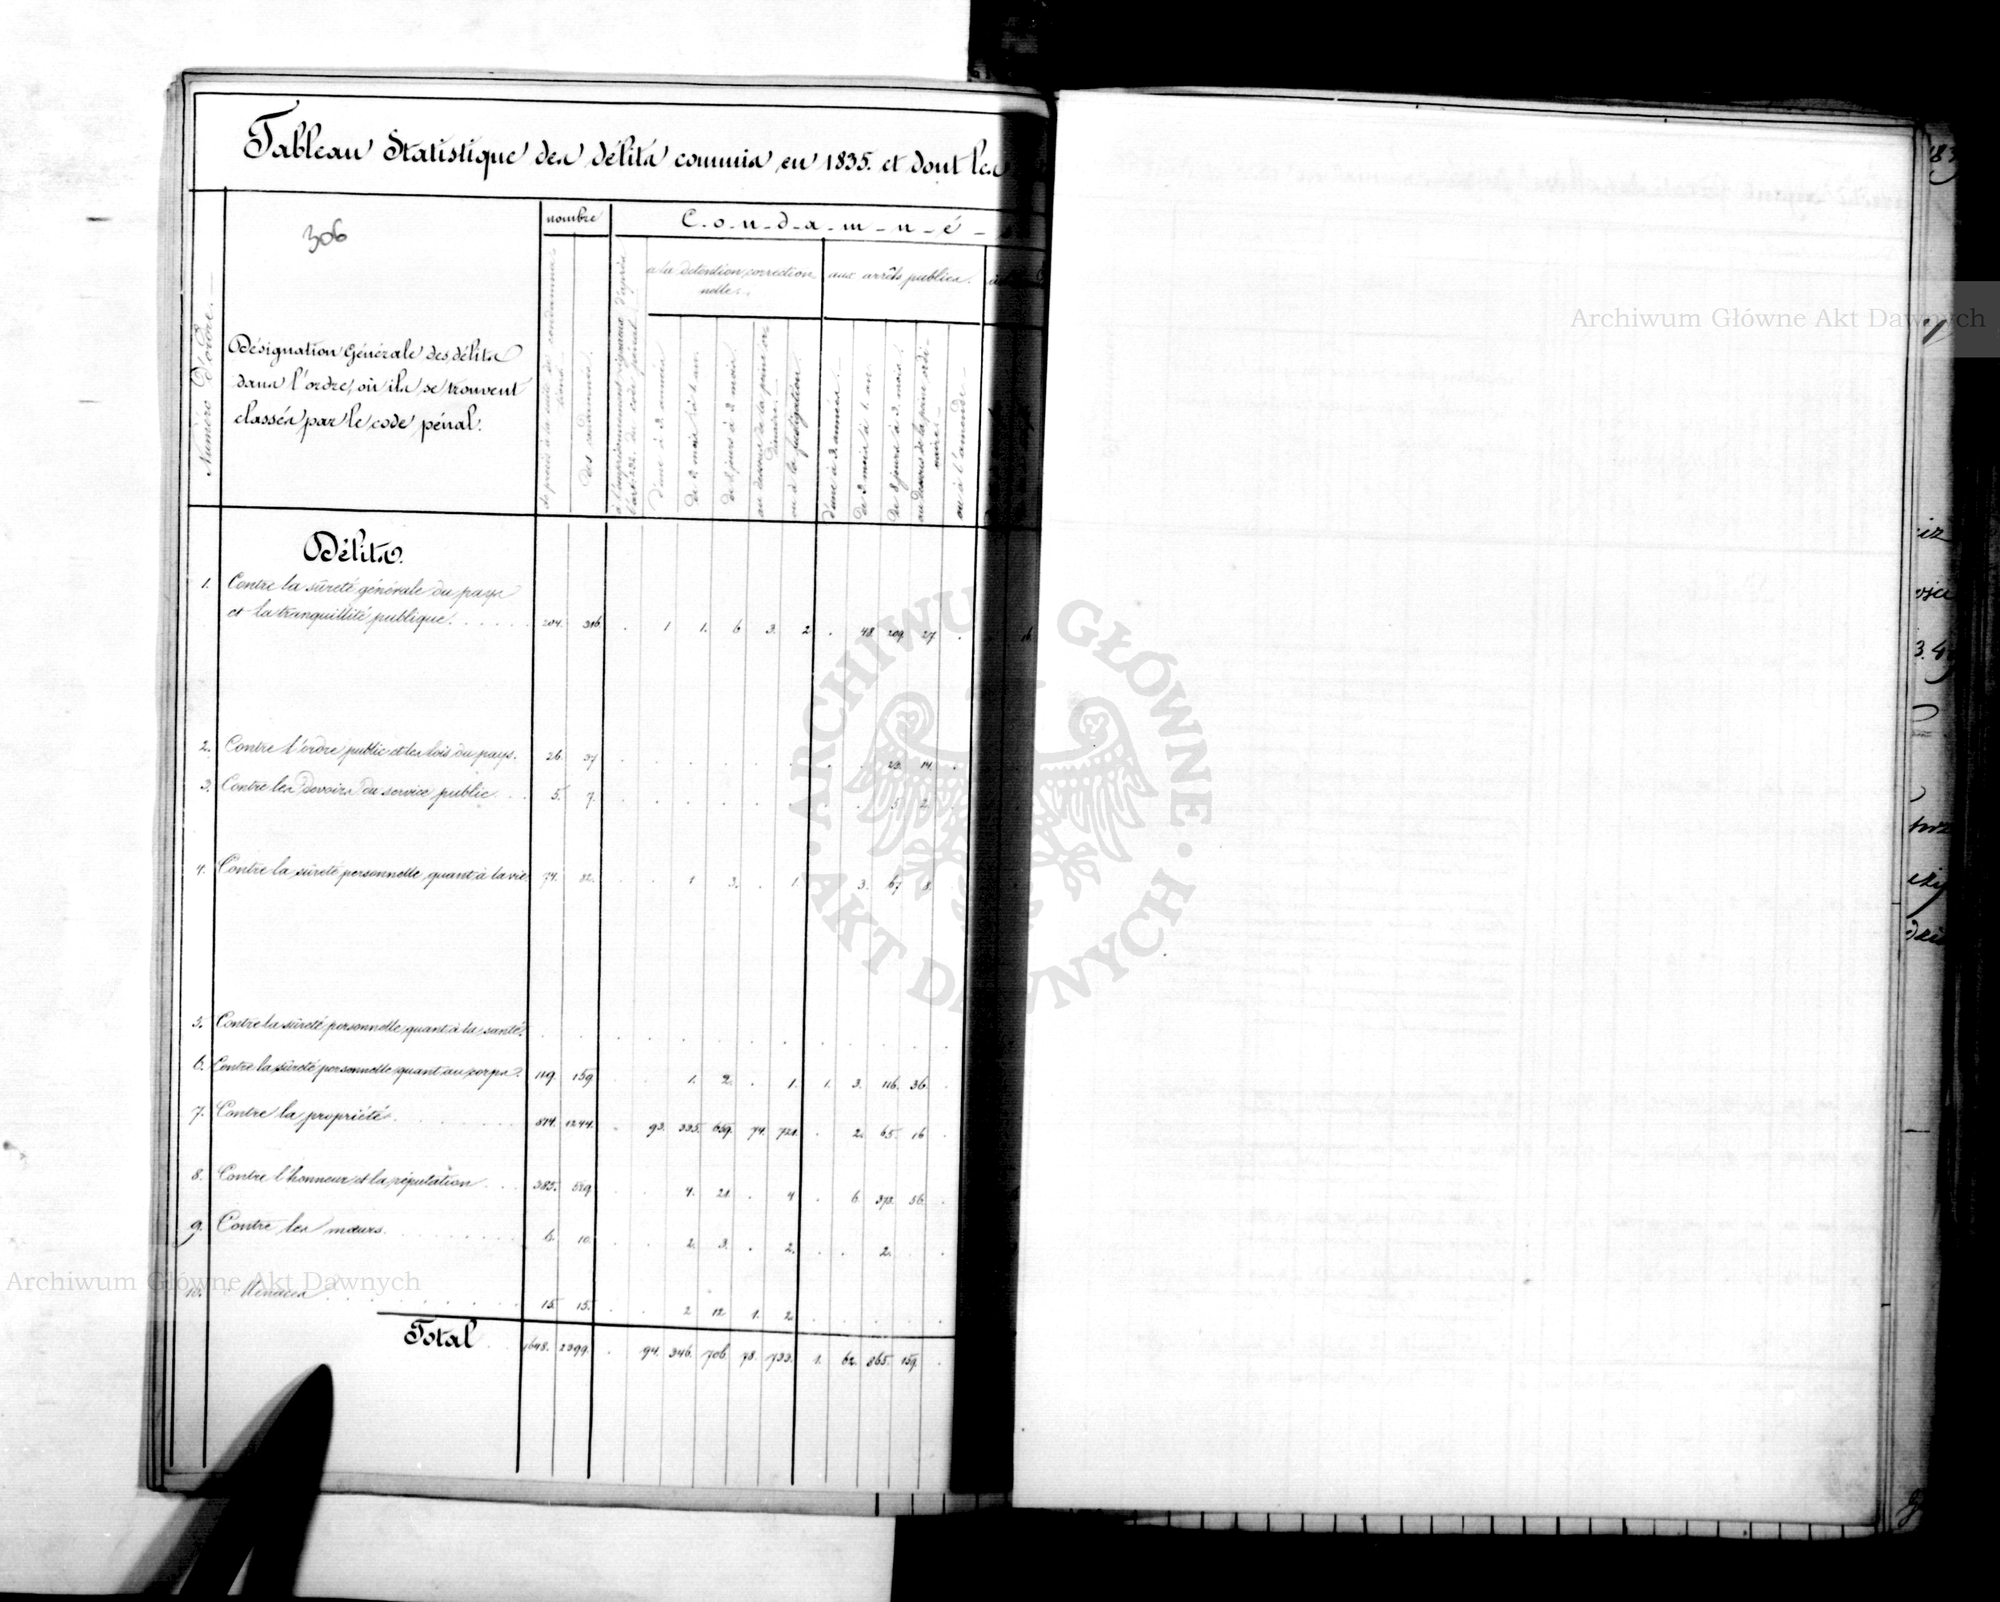 Tableau Statistique des délits commis en 1835. et dont les
306
nombre
C-o-n-d-a-m-n-é-
Numéro d'ordre.
Désignation Générale des délits
dans l'ordre où ils se trouvent
classés par le code pénal.
de procès à la suite de condamna-
tions.
des condamnés.
à l'emprisonnement rigoureux d'après
l'art. 132. du code pénal.
à la détention correction
nelle.
d'une à 3. années
de 3 mois à 1 an.
de 8 jours à 3 mois.
au dessous de la peine or
dinaire.
ou à la fustigation.
aux arrêts publics.
d'une à 3. années.
de 3 mois à 1. an.
de 8 jours à 3. mois.
au dessous de la peine ordi-
naire.
ou à l'amende.
Délits.
1. Contre la sûreté générale du pays
et la tranquillité publique. 204. 316. . 1 1. 6 3. 2 . 48. 209. 27. . 16
2. Contre l'ordre public et les lois du pays. 26. 37 . . . . . . . . 23. 14. .
3. Contre les devoirs du service public. 5. 7. . . . . . . . . 5. 2.
4. Contre la sûreté personnelle quant à la vie 74. 82. . . 1 3. . 1. 3. 67 8.
5. Contre la sûreté personnelle quant à la santé.
6. Contre la sûreté personnelle quant au corps. 119. 159 . . 1. 2. . 1. 1. 3. 116. 36. .
7. Contre la propriété. 814. 1244. . 93. 335. 659. 74. 721. . 2. 65. 16 .
8. Contre l'honneur et la réputation 385. 529. . . 4. 21. . 4 . 6. 373. 56. .
9. Contre les mœurs. 6. 10. . . 2. 3. . 2. . . 2. . .
10. Menaces 15. 15. . . 2 12 1. 2. . . . . .
Total 1648. 2399. . 94. 346. 706. 78. 733. 1. 62. 865. 159. .
Archiwum Główne Akt Dawnych
ARCHIWUM GŁÓWNE · AKT DAWNYCH ·
Archiwum Główne Akt Dawnych